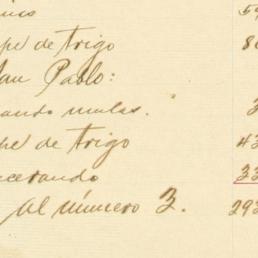 pe de trigo
San Pablo:
ando mulas.
pe de trigo
cerando
Al número 3. 293